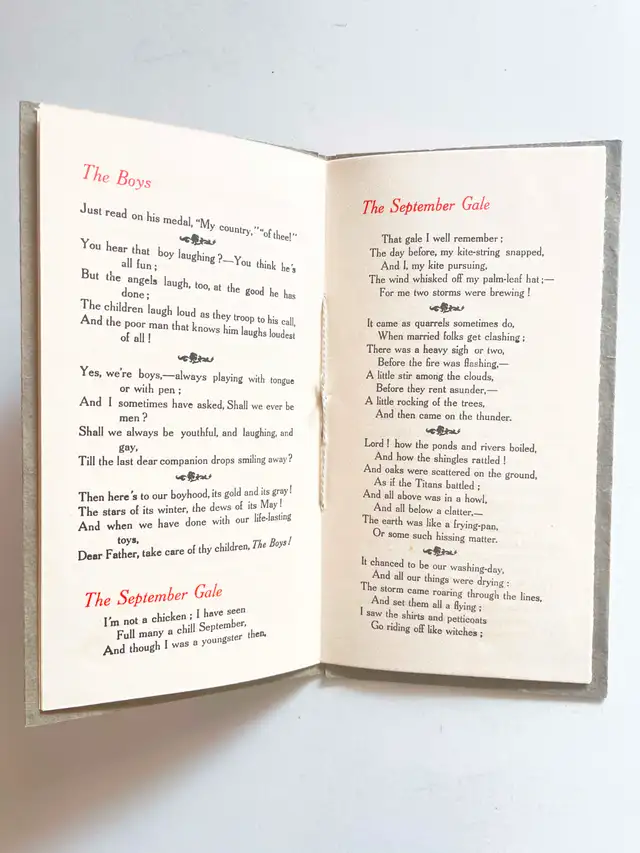 The Boys
Just read on his medal, “My country,” “of thee!”
You hear that boy laughing?—You think he's
all fun;
But the angels laugh, too, at the good he has
done;
The children laugh loud as they troop to his call,
And the poor man that knows him laughs loudest
of all!
Yes, we're boys,—always playing with tongue
or with pen;
And I sometimes have asked, Shall we ever be
men?
Shall we always be youthful, and laughing, and
gay,
Till the last dear companion drops smiling away?
Then here's to our boyhood, its gold and its gray!
The stars of its winter, the dews of its May!
And when we have done with our life-lasting
toys,
Dear Father, take care of thy children, The Boys!
The September Gale
I'm not a chicken; I have seen
Full many a chill September,
And though I was a youngster then,
The September Gale
That gale I well remember;
The day before, my kite-string snapped,
And I, my kite pursuing,
The wind whisked off my palm-leaf hat;—
For me two storms were brewing!
It came as quarrels sometimes do,
When married folks get clashing;
There was a heavy sigh or two,
Before the fire was flashing,—
A little stir among the clouds,
Before they rent asunder,—
A little rocking of the trees,
And then came on the thunder.
Lord! how the ponds and rivers boiled,
And how the shingles rattled!
And oaks were scattered on the ground,
As if the Titans battled;
And all above was in a howl,
And all below a clatter,—
The earth was like a frying-pan,
Or some such hissing matter.
It chanced to be our washing-day,
And all our things were drying:
The storm came roaring through the lines,
And set them all a flying;
I saw the shirts and petticoats
Go riding off like witches;